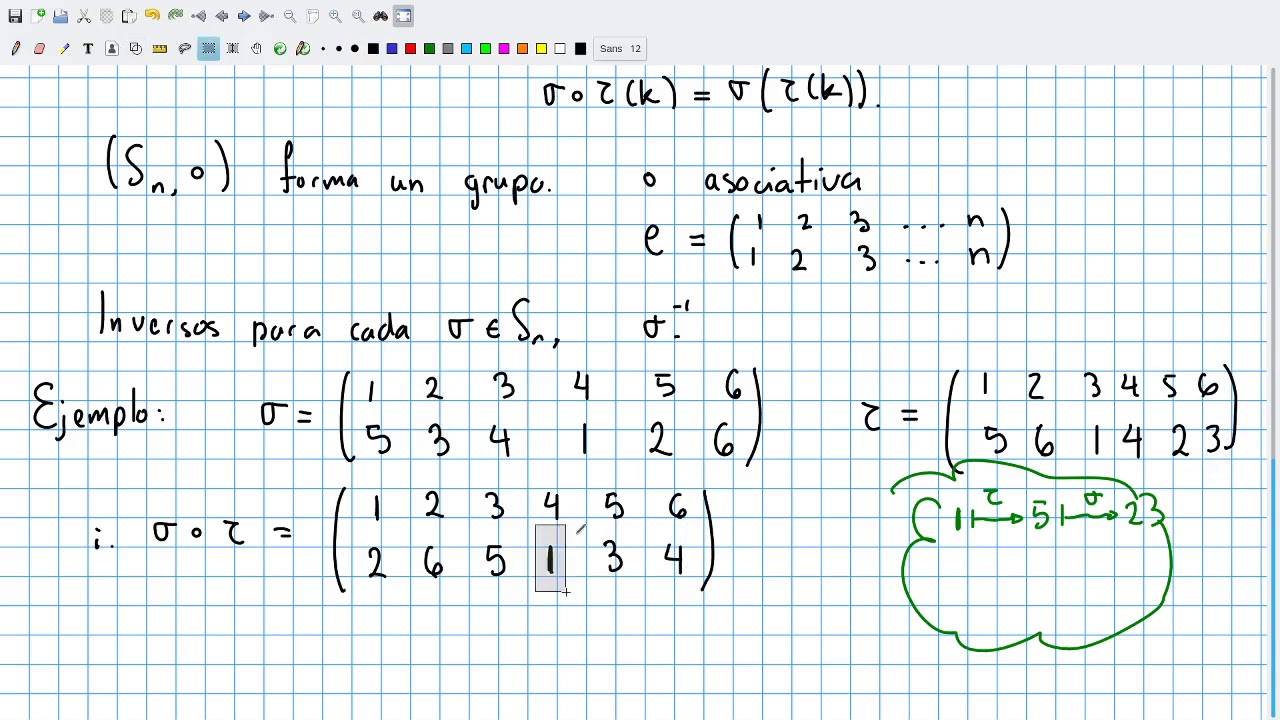 Sans 12
σ∘τ(k) = σ(τ(k)).
(Sₙ, ∘) forma un grupo. ∘ asociativa
e = (1 2 3 ... n
1 2 3 ... n)
Inversos para cada σ ∈ Sₙ, σ⁻¹.
Ejemplo: σ = (1 2 3 4 5 6
5 3 4 1 2 6)
τ = (1 2 3 4 5 6
5 6 1 4 2 3)
i. σ ∘ τ = (1 2 3 4 5 6
2 6 5 1 3 4)
1 τ↦ 5 σ↦ 2